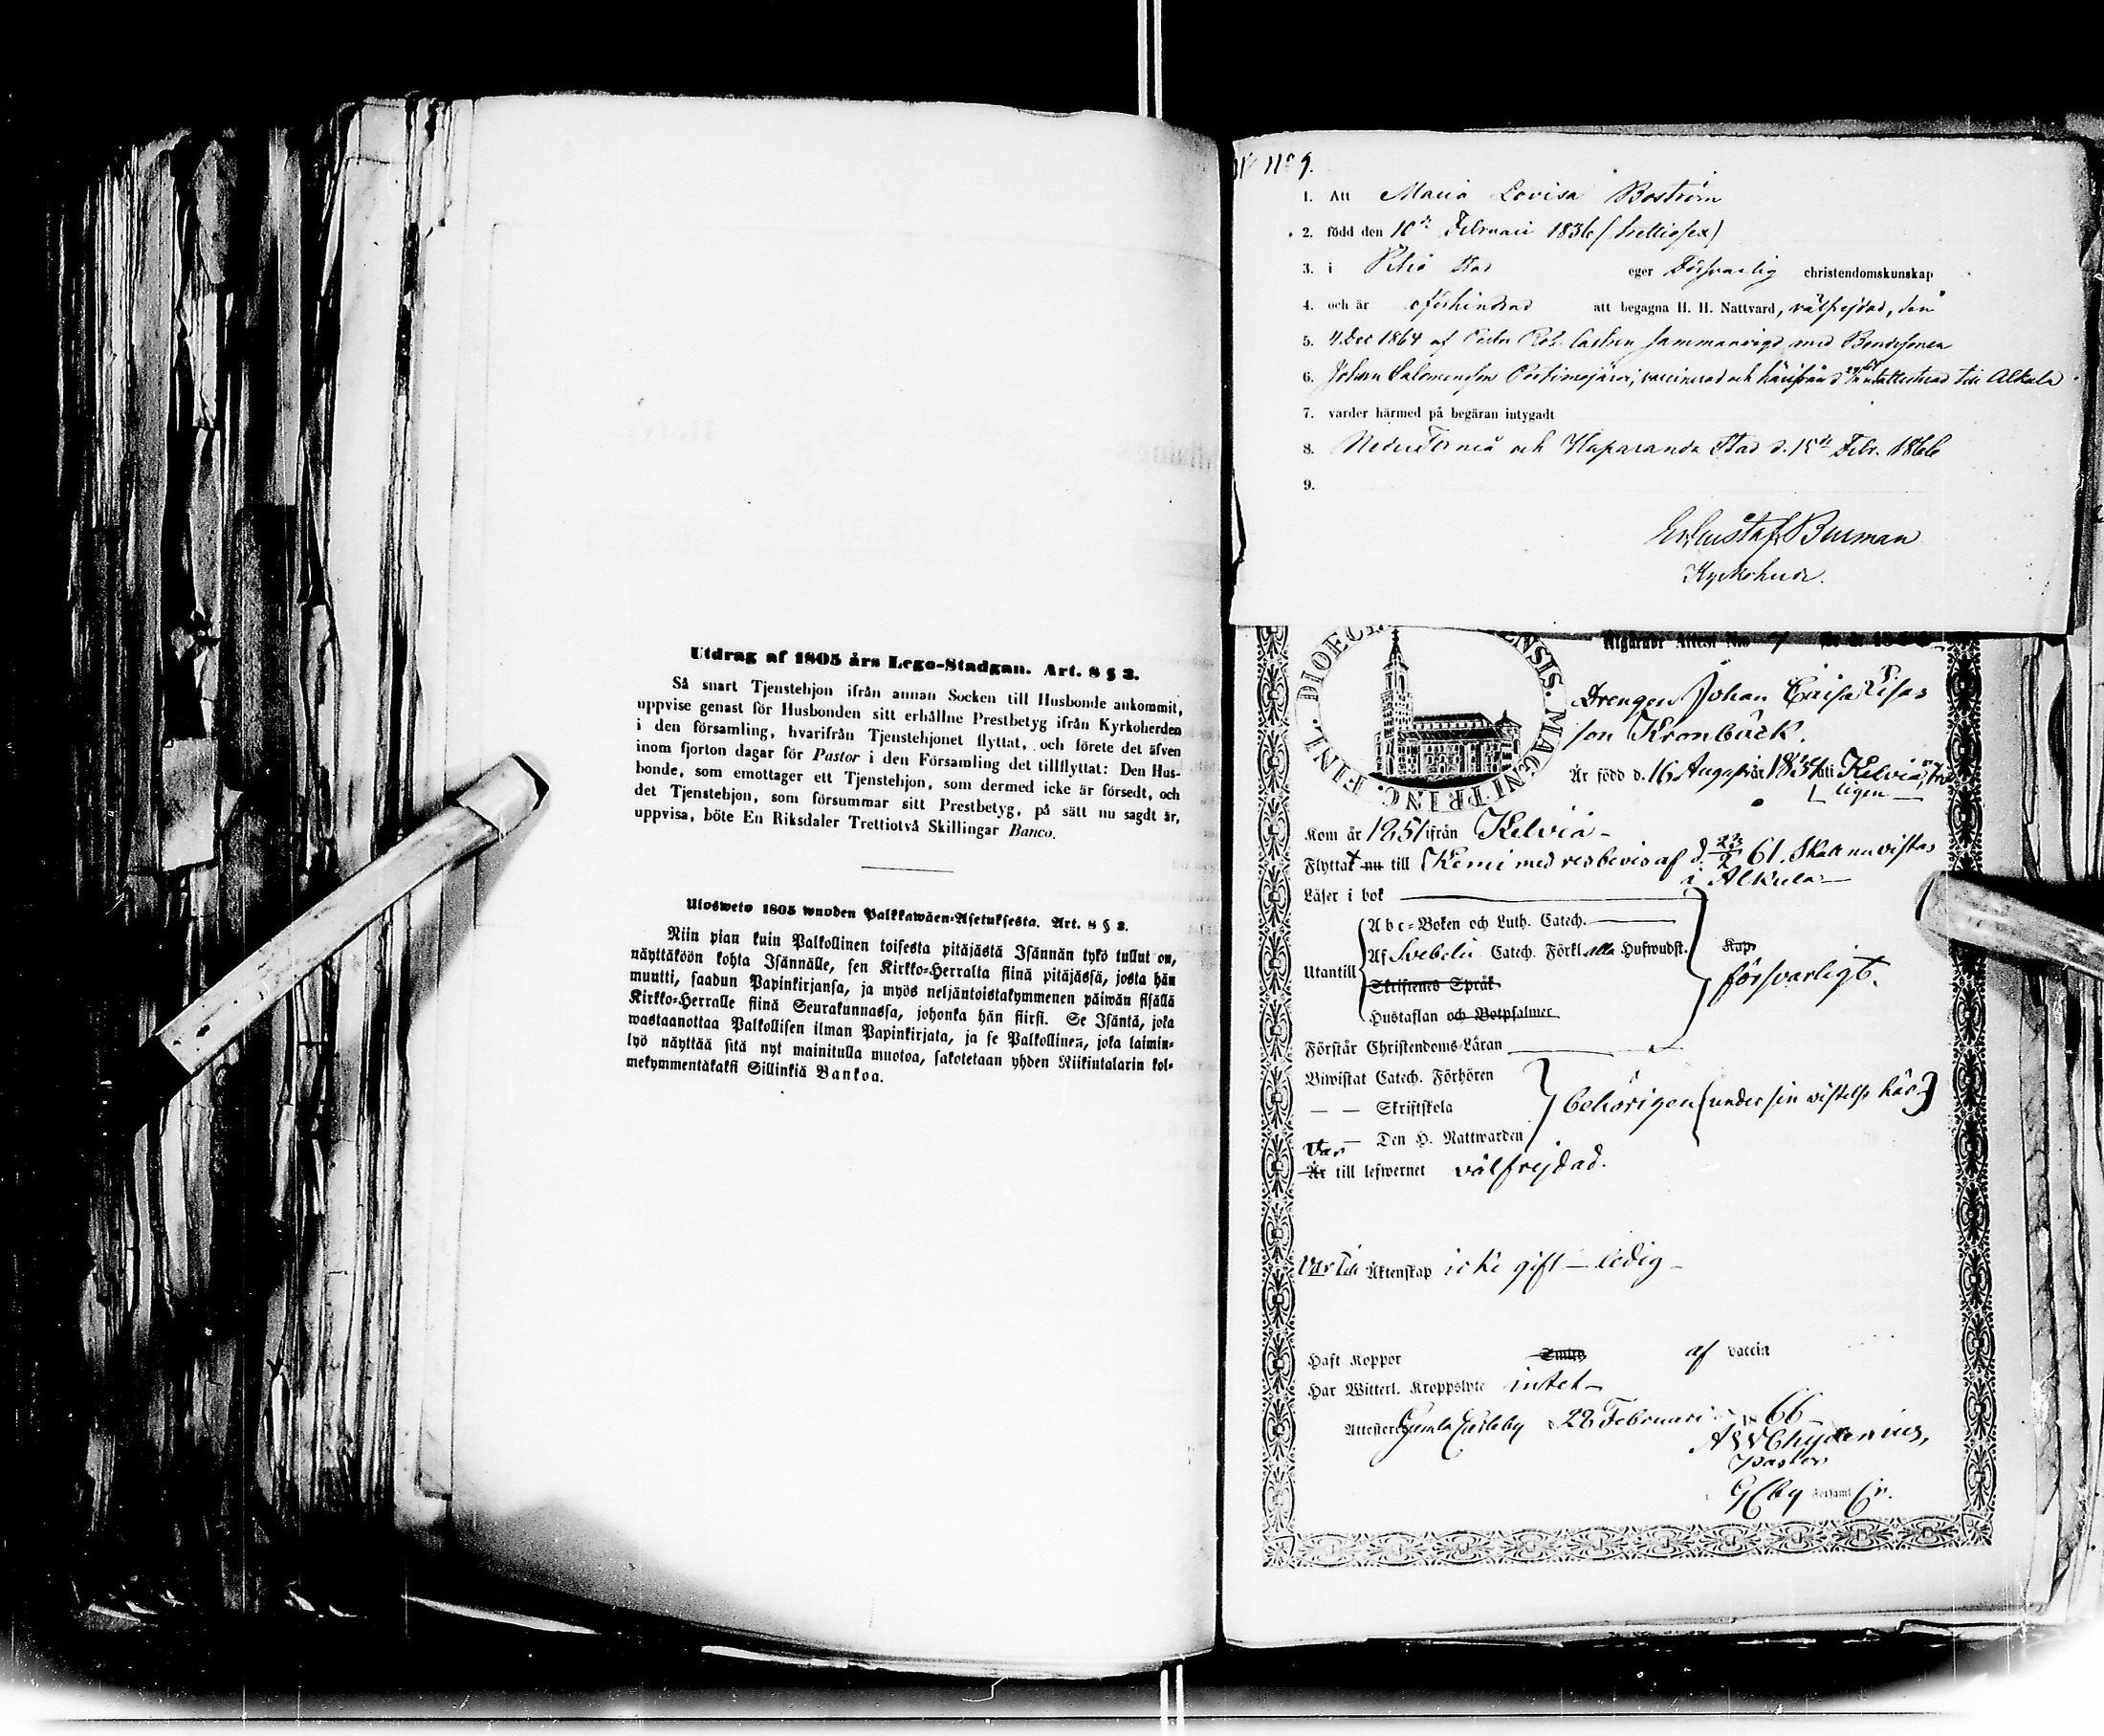 Utdrag af 1805 års Lego-Stadgan. Art. 8 § 3.
Så snart Tjenstehjon ifrån annan Socken till Husbonde ankommit,
uppvise genast för Husbonden sitt erhållne Prestbetyg ifrån Kyrkoherden
i den församling, hvarifrån Tjenstehjonet flyttat, och förete det äfven
inom fjorton dagar för Pastor i den Församling det tillflyttat: Den Hus-
bonde, som emottager ett Tjenstehjon, som dermed icke är försedt, och
det Tjenstehjon, som försummar sitt Prestbetyg, på sätt nu sagdt är,
uppvisa, böte En Riksdaler Trettiotvå Skillingar Banco.
Ulosweto 1805 wuoden Palkkawäen-Asetuksesta. Art. 8 § 3.
Niin pian kuin Palkollinen toisesta pitäjästä Isännän tykö tullut on,
näyttäköön kohta Isännälle, sen Kirkko-Herralta siinä pitäjässä, josta hän
muutti, saadun Papinkirjansa, ja myös neljäntoistakymmenen päiwän sisällä
Kirkko-Herralle siinä Seurakunnassa, johonka hän siirsi. Se Isäntä, joka
wastaanottaa Palkollisen ilman Papinkirjata, ja se Palkollinen, joka laimin-
lyö näyttää sitä nyt mainitulla muotoa, sakotetaan yhden Riikintalarin kol-
mekymmentäkaksi Sillinkiä Bankoa.
No 9.
1. Att Maria Lovisa Boström
2. född den 10de Februari 1836 (trettiosex)
3. i Piteå stad eger försvarlig christendomskunskap
4. och är oförhindrad att begagna H. H. Nattvard, välfrejdad, den
5. 4 Dec 1864 af Castrén sammanvigd med Bondesonen
6. Johan Salomonsson Portimojärvi, vaccinerad och härifrån till Alkula
7. varder härmed på begäran intygadt
8. Neder Torneå och Haparanda Stad d. 15de Febr. 1866
9.
Er. Gustaf Burman
Kyrkoherde.
FINL. DIOEC ENSIS. MAGNI PRINC.
Utgående Attest No 7
Drengen Johan Erik
son Kronbäck.
Är född d. 16 Augusti år 1834 uti Kelviå,
ligen
Kom år 1851 ifrån Kelviå -
Flyttat nu till Kemi med resbevis af d. 23/2 61. Skall nu vistas
i Alkula -
Läser i bok
Abc-Boken och Luth. Catech.
Utantill Af Svebelii Catech. Förkl. alla Hufwudst. Kap.
Skriftenes Språk försvarligt.
Hustaflan och Botpsalmer
Förstår Christendoms-Läran
Biwistat Catech. Förhören
— — Skriftskola behörigen (under sin vistelse här)
— — Den H. Nattwarden
Var
Är till lefwernet välfrejdad.
Var Till Äktenskap icke gift - ledig -
Haft Koppor af vaccin
Har Witterl. Kroppslyte intet -
Attesterar Gamla Carleby d. 22 Februari 1866
A W Chydenius,
Pastor
GCby Församl